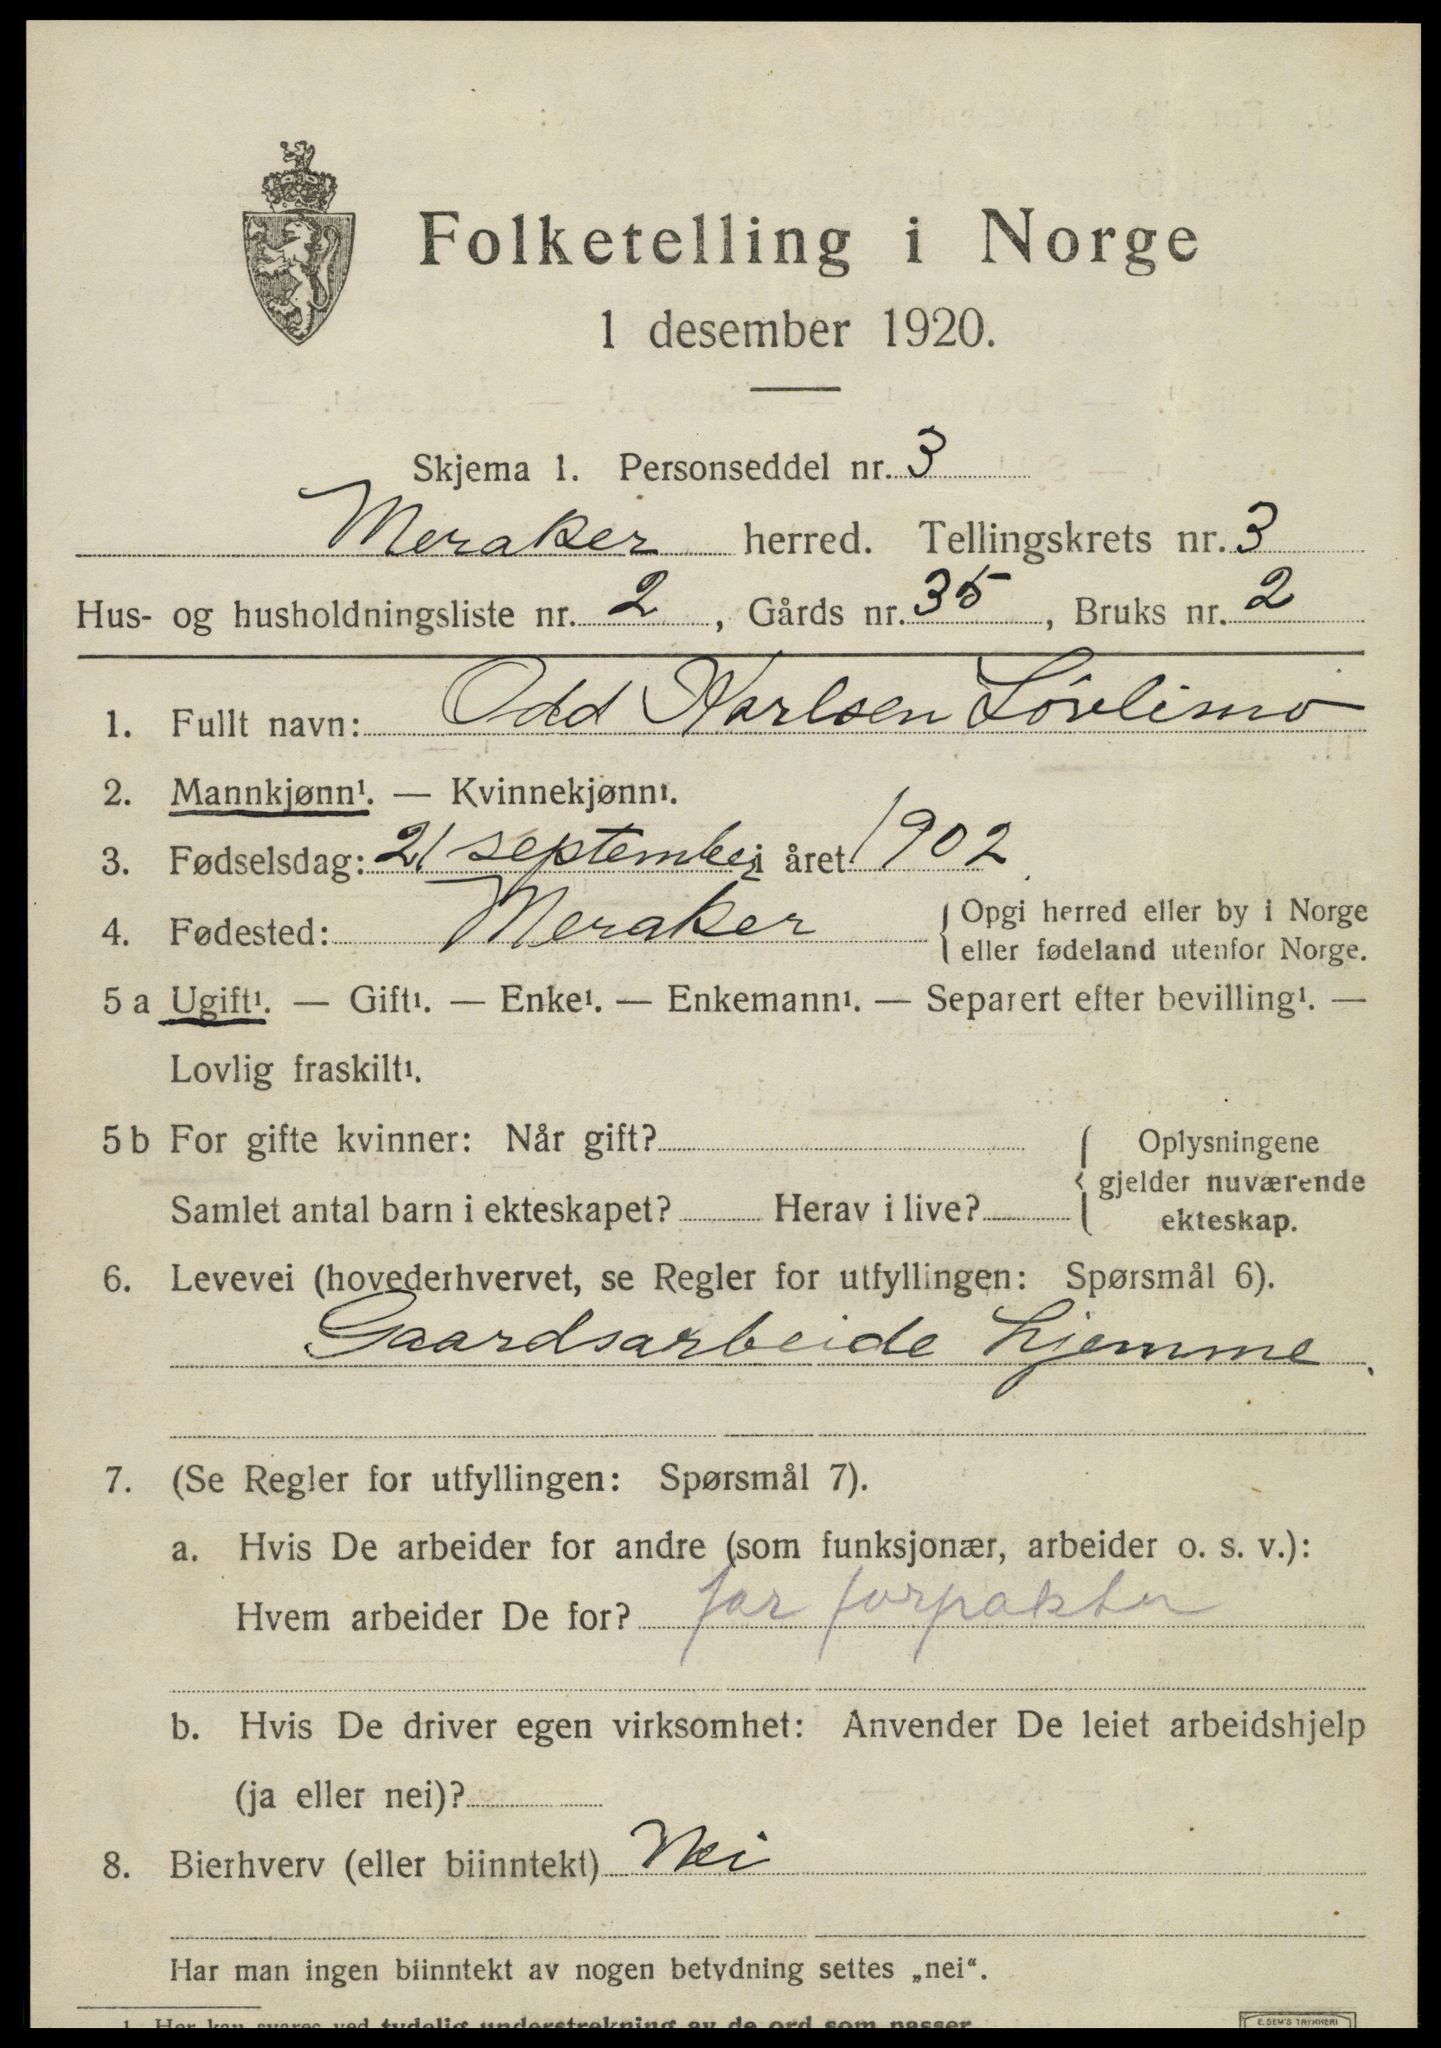 Folketelling i Norge
1 desember 1920.
Skjema 1. Personseddel nr. 3
Meraker herred. Tellingskrets nr. 3
Hus- og husholdningsliste nr. 2, Gårds nr. 35, Bruks nr. 2
1. Fullt navn: Odd Karlsen Lövlimo
2. Mannkjønn¹. — Kvinnekjønn¹.
3. Fødselsdag: 21 september i året 1902
4. Fødested: Meraker
Opgi herred eller by i Norge
eller fødeland utenfor Norge.
5 a Ugift¹. — Gift¹. — Enke¹. — Enkemann¹. — Separert efter bevilling¹. —
Lovlig fraskilt¹.
5 b For gifte kvinner: Når gift?
Samlet antal barn i ekteskapet? Herav i live?
Oplysningene
gjelder nuværende
ekteskap.
6. Levevei (hovederhvervet, se Regler for utfyllingen: Spørsmål 6).
Gaardsarbeide hjemme.
7. (Se Regler for utfyllingen: Spørsmål 7).
a. Hvis De arbeider for andre (som funksjonær, arbeider o. s. v.):
Hvem arbeider De for? far forpakter
b. Hvis De driver egen virksomhet: Anvender De leiet arbeidshjelp
(ja eller nei)?
8. Bierhverv (eller biinntekt) Nei
Har man ingen biinntekt av nogen betydning settes „nei“.
1. Her kan svares ved tydelig understrekning av de ord som passer.
E. SEM'S TRYKKERI